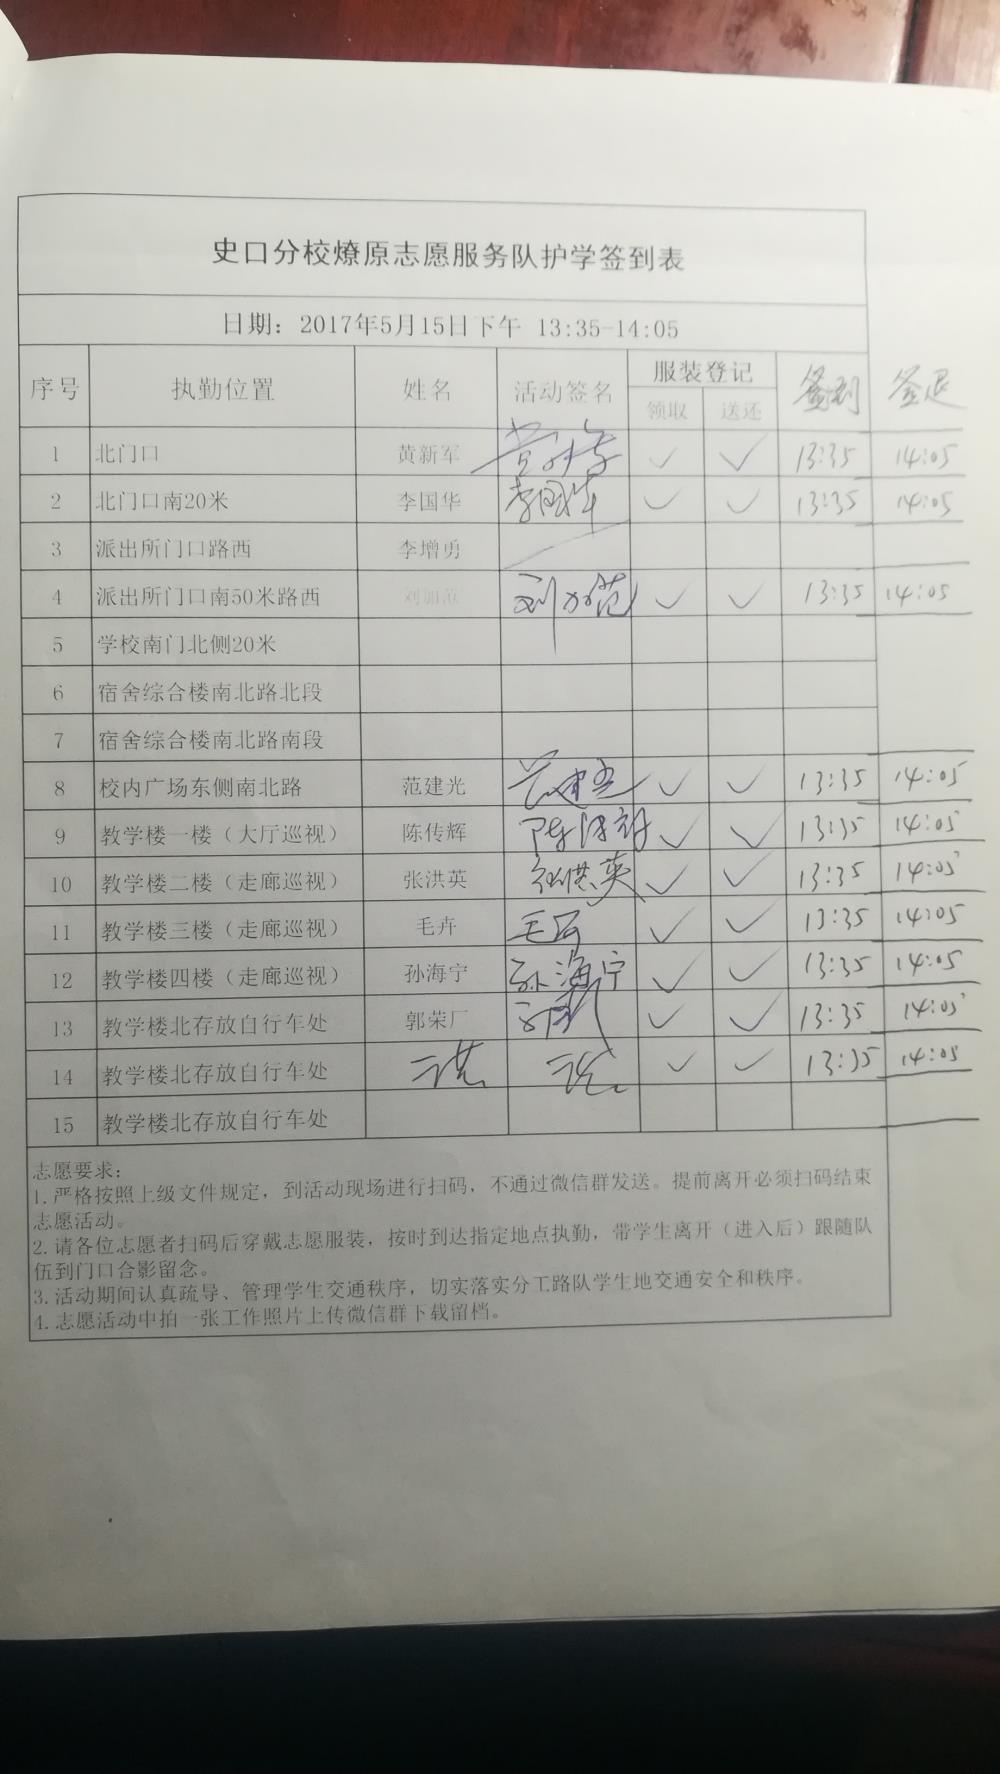 史口分校燎原志愿服务队护学签到表
日期：2017年5月15日下午 13:35-14:05
序号 执勤位置 姓名 活动签名 服装登记 签到 签退
领取 送还
1 北门口 黄新军 黄新军 ✓ ✓ 13:35 14:05
2 北门口南20米 李国华 李国华 ✓ ✓ 13:35 14:05
3 派出所门口路西 李增勇
4 派出所门口南50米路西 刘加范 刘加范 ✓ ✓ 13:35 14:05
5 学校南门北侧20米
6 宿舍综合楼南北路北段
7 宿舍综合楼南北路南段
8 校内广场东侧南北路 范建光 范建光 ✓ ✓ 13:35 14:05
9 教学楼一楼（大厅巡视） 陈传辉 陈传辉 ✓ ✓ 13:35 14:05
10 教学楼二楼（走廊巡视） 张洪英 张洪英 ✓ ✓ 13:35 14:05
11 教学楼三楼（走廊巡视） 毛卉 毛卉 ✓ ✓ 13:35 14:05
12 教学楼四楼（走廊巡视） 孙海宁 孙海宁 ✓ ✓ 13:35 14:05
13 教学楼北存放自行车处 郭荣厂 ✓ ✓ 13:35 14:05
14 教学楼北存放自行车处 ✓ ✓ 13:35 14:05
15 教学楼北存放自行车处
志愿要求：
1. 严格按照上级文件规定，到活动现场进行扫码，不通过微信群发送。提前离开必须扫码结束
志愿活动。
2. 请各位志愿者扫码后穿戴志愿服装，按时到达指定地点执勤，带学生离开（进入后）跟随队
伍到门口合影留念。
3. 活动期间认真疏导、管理学生交通秩序，切实落实分工路队学生地交通安全和秩序。
4. 志愿活动中拍一张工作照片上传微信群下载留档。